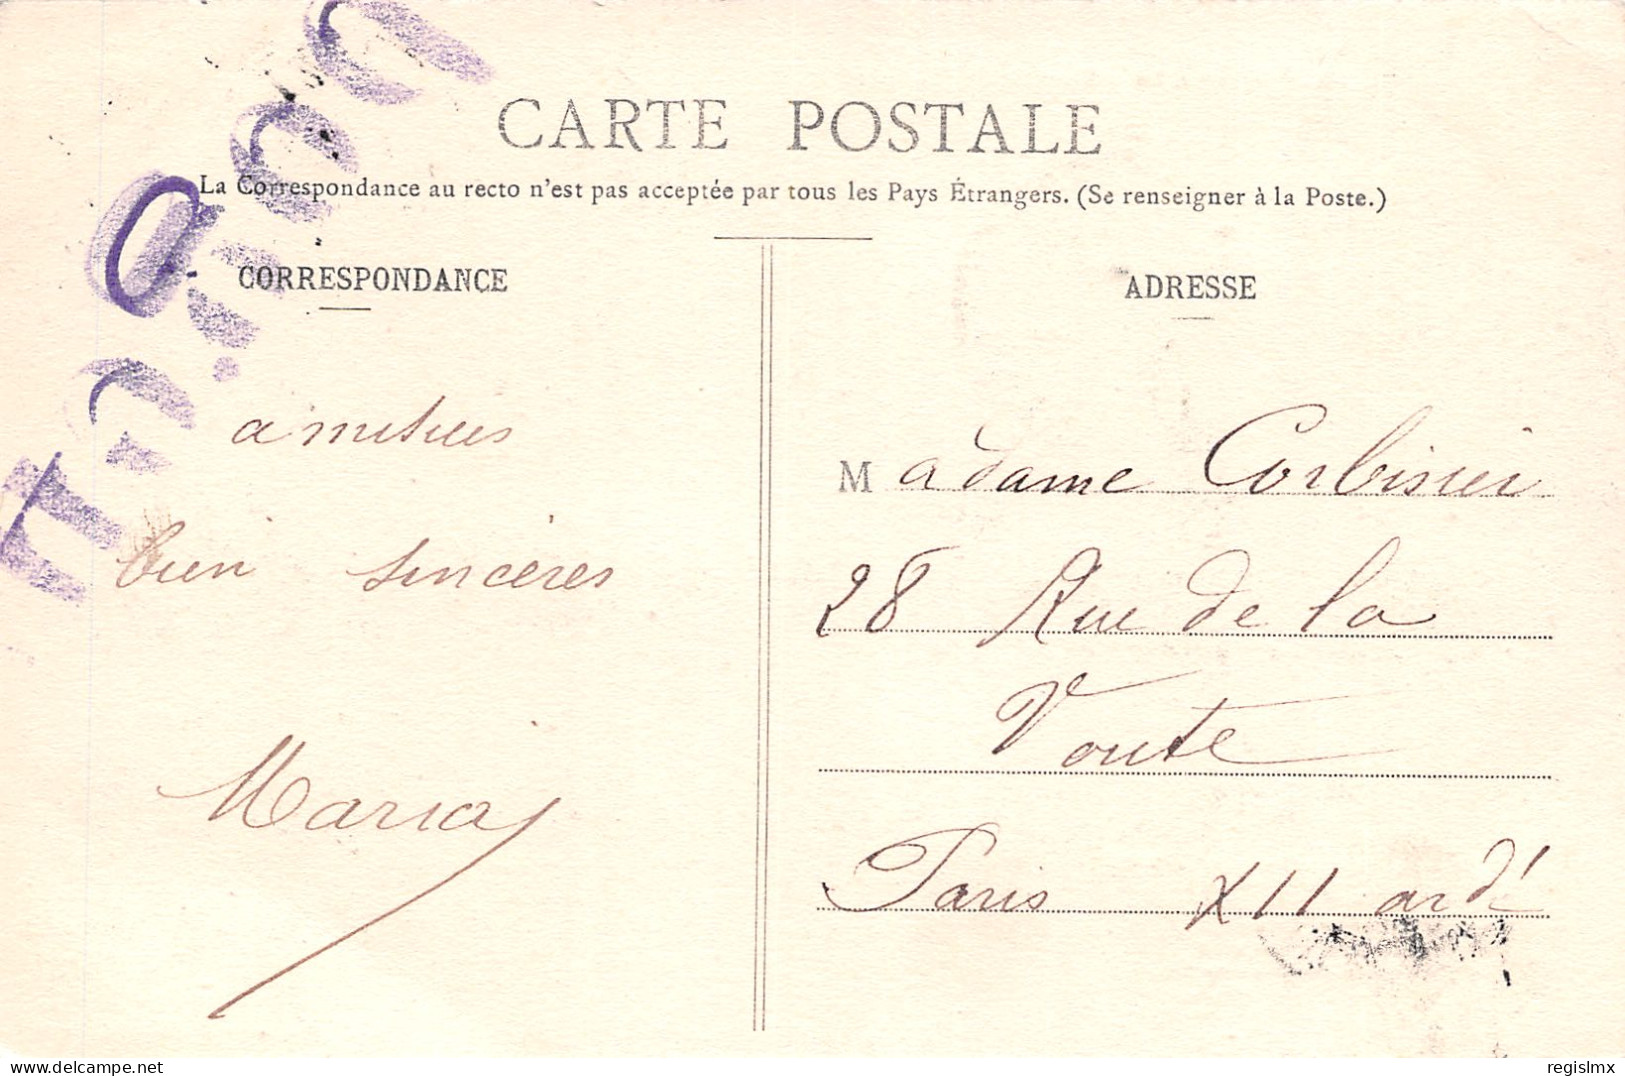 CARTE POSTALE
La Correspondance au recto n'est pas acceptée par tous les Pays Étrangers. (Se renseigner à la Poste.)
CORRESPONDANCE
amitiés
bien sincères
Maria
ADRESSE
Madame Corbisier
28 Rue de la
Voute
Paris XII ardt
delcampe.net
regislmx